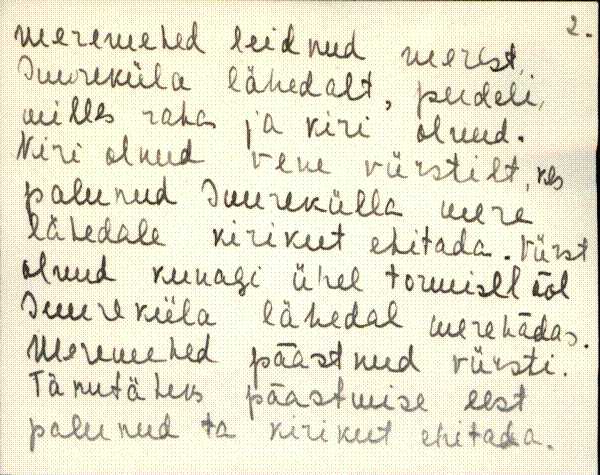 2.
meremehed leidnud merest,
Suureküla lähedalt, pudeli,
milles raha ja kiri olnud.
Kiri olnud vene vürstilt, kes
palunud Suurekülla mere
lähedale kirikut ehitada. Vürst
olnud kunagi ühel tormisel ööl
Suureküla lähedal merehädas.
Meremehed päästnud vürsti.
Tänutäheks päästmise eest
palunud ta kirikut ehitada.